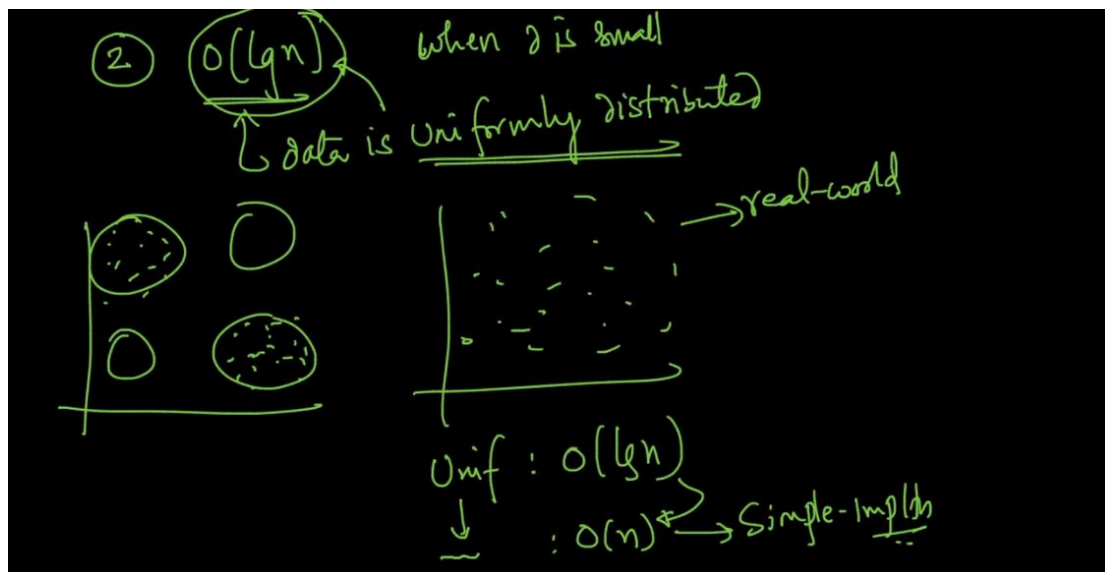 2 O(lgn) when d is small
data is Uniformly distributed
real-world
Unif : O(lgn)
: O(n) Simple-Impl